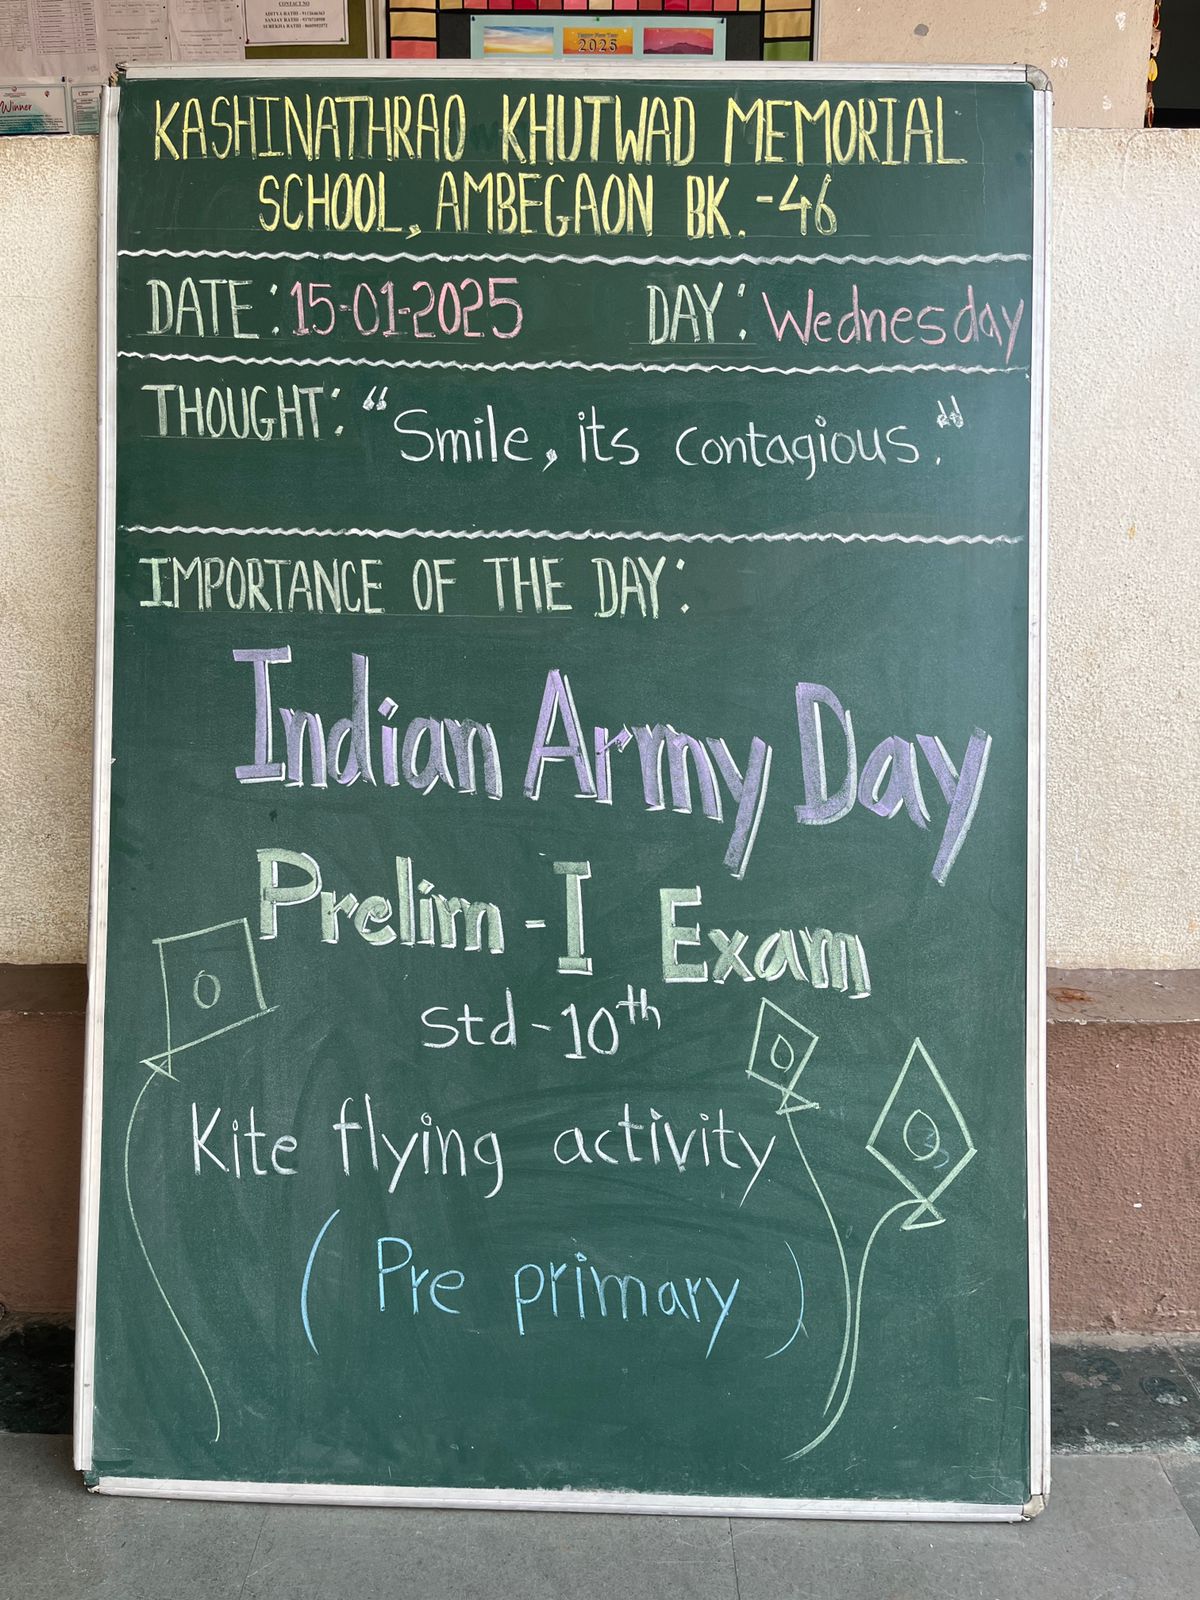 CONTACT NO
Winner
Happy New Year
2025
KASHINATHRAO KHUTWAD MEMORIAL
SCHOOL, AMBEGAON BK. -46
DATE: 15-01-2025 DAY: Wednesday
THOUGHT: "Smile, its contagious."
IMPORTANCE OF THE DAY:
Indian Army Day
Prelim - I Exam
Std - 10th
Kite flying activity
( Pre primary )